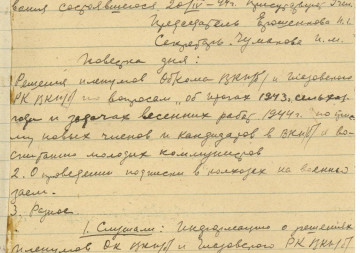 состоявшегося 20/IV-44г.
Председатель Ерошенкова
Секретарь Чумакова И.М.
Повестка дня:
Решения пленумов Обкома ВКП/б/ и
РК ВКП/б/ по вопросам „об итогах 1943 сельхоз.
года и задачах весенних работ 1944г.
новых членов и кандидатов в ВКП/б/ и во-
спитанию молодых коммунистов
2. О проведении подписки в колхозах на военный
заем.
3. Разное
1. Слушали: Информацию о решениях
Пленумов ОК ВКП/б/ и РК ВКП/б/